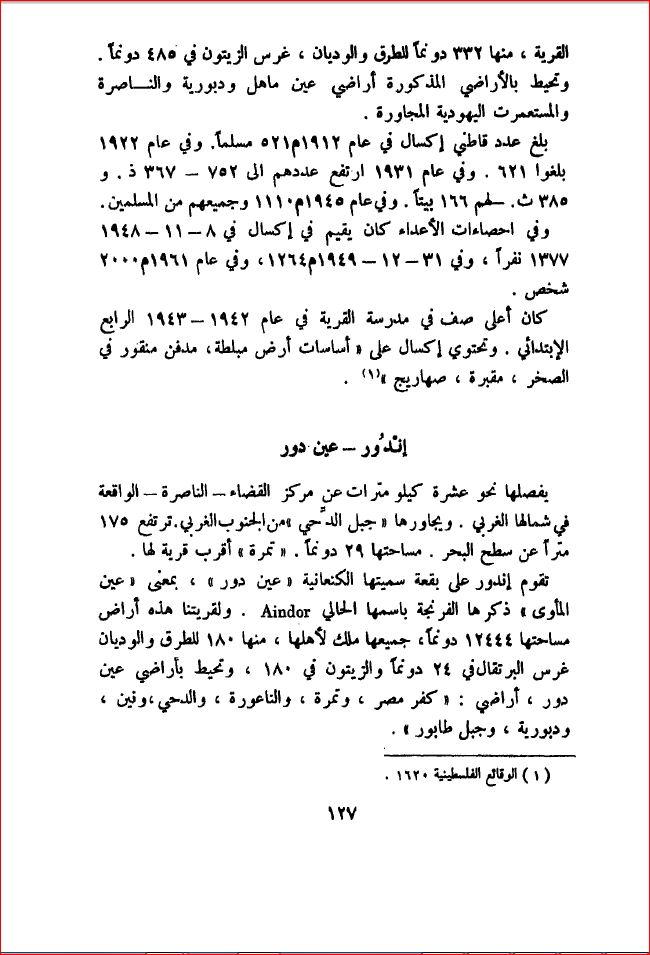 القرية ، منها ٣٣٢ دونماً للطرق والوديان ، غرس الزيتون في ٤٨٥ دونماً .
وتحيط بالأراضي المذكورة أراضي عين ماهل ودبورية والناصرة
والمستعمرت اليهودية المجاورة .
بلغ عدد قاطني إكسال في عام ١٩١٢م٥٢١ مسلماً. وفي عام ١٩٢٢
بلغوا ٦٢١ . وفي عام ١٩٣١ ارتفع عددهم الى ٧٥٢ – ٣٦٧ ذ . و
٣٨٥ ث. – لهم ١٦٦ بيتاً . وفي عام ١٩٤٥م١١١٠ وجميعهم من المسلمين.
وفي احصاءات الأعداء كان يقيم في إكسال في ٨ – ١١ – ١٩٤٨
١٣٧٧ نفراً ، وفي ٣١ – ١٢ – ١٩٤٩م١٢٦٤، وفي عام ١٩٦١م٢٠٠٠
شخص .
كان أعلى صف في مدرسة القرية في عام ١٩٤٢ – ١٩٤٣ الرابع
الإبتدائي . وتحتوي إكسال على « أساسات أرض مبلطة، مدفن منقور في
الصخر ، مقبرة ، صهاريج »(١) .
إنْدُور – عين دور
يفصلها نحو عشرة كيلو مترات عن مركز القضاء – الناصرة – الواقعة
في شمالها الغربي . ويجاورها « جبل الدِّحي »من الجنوب الغربي.ترتفع ١٧٥
متراً عن سطح البحر . مساحتها ٢٩ دونماً . « تمرة » أقرب قرية لها .
تقوم إندور على بقعة سميتها الكنعانية « عين دور » ، بمعنى « عين
المأوى » ذكرها الفرنجة باسمها الحالي Aindor . ولقريتنا هذه أراض
مساحتها ١٢٤٤٤ دونماً، جميعها ملك لأهلها ، منها ١٨٠ للطرق والوديان
غرس البرتقال في ٢٤ دونماً والزيتون في ١٨٠ ، وتحيط بأراضي عين
دور ، أراضي : « كفر مصر ، وتمرة ، والناعورة ، والدحي ،ونين ،
ودبورية ، وجبل طابور » .
(١) الوقائع الفلسطينية ١٦٢٠ .
١٢٧